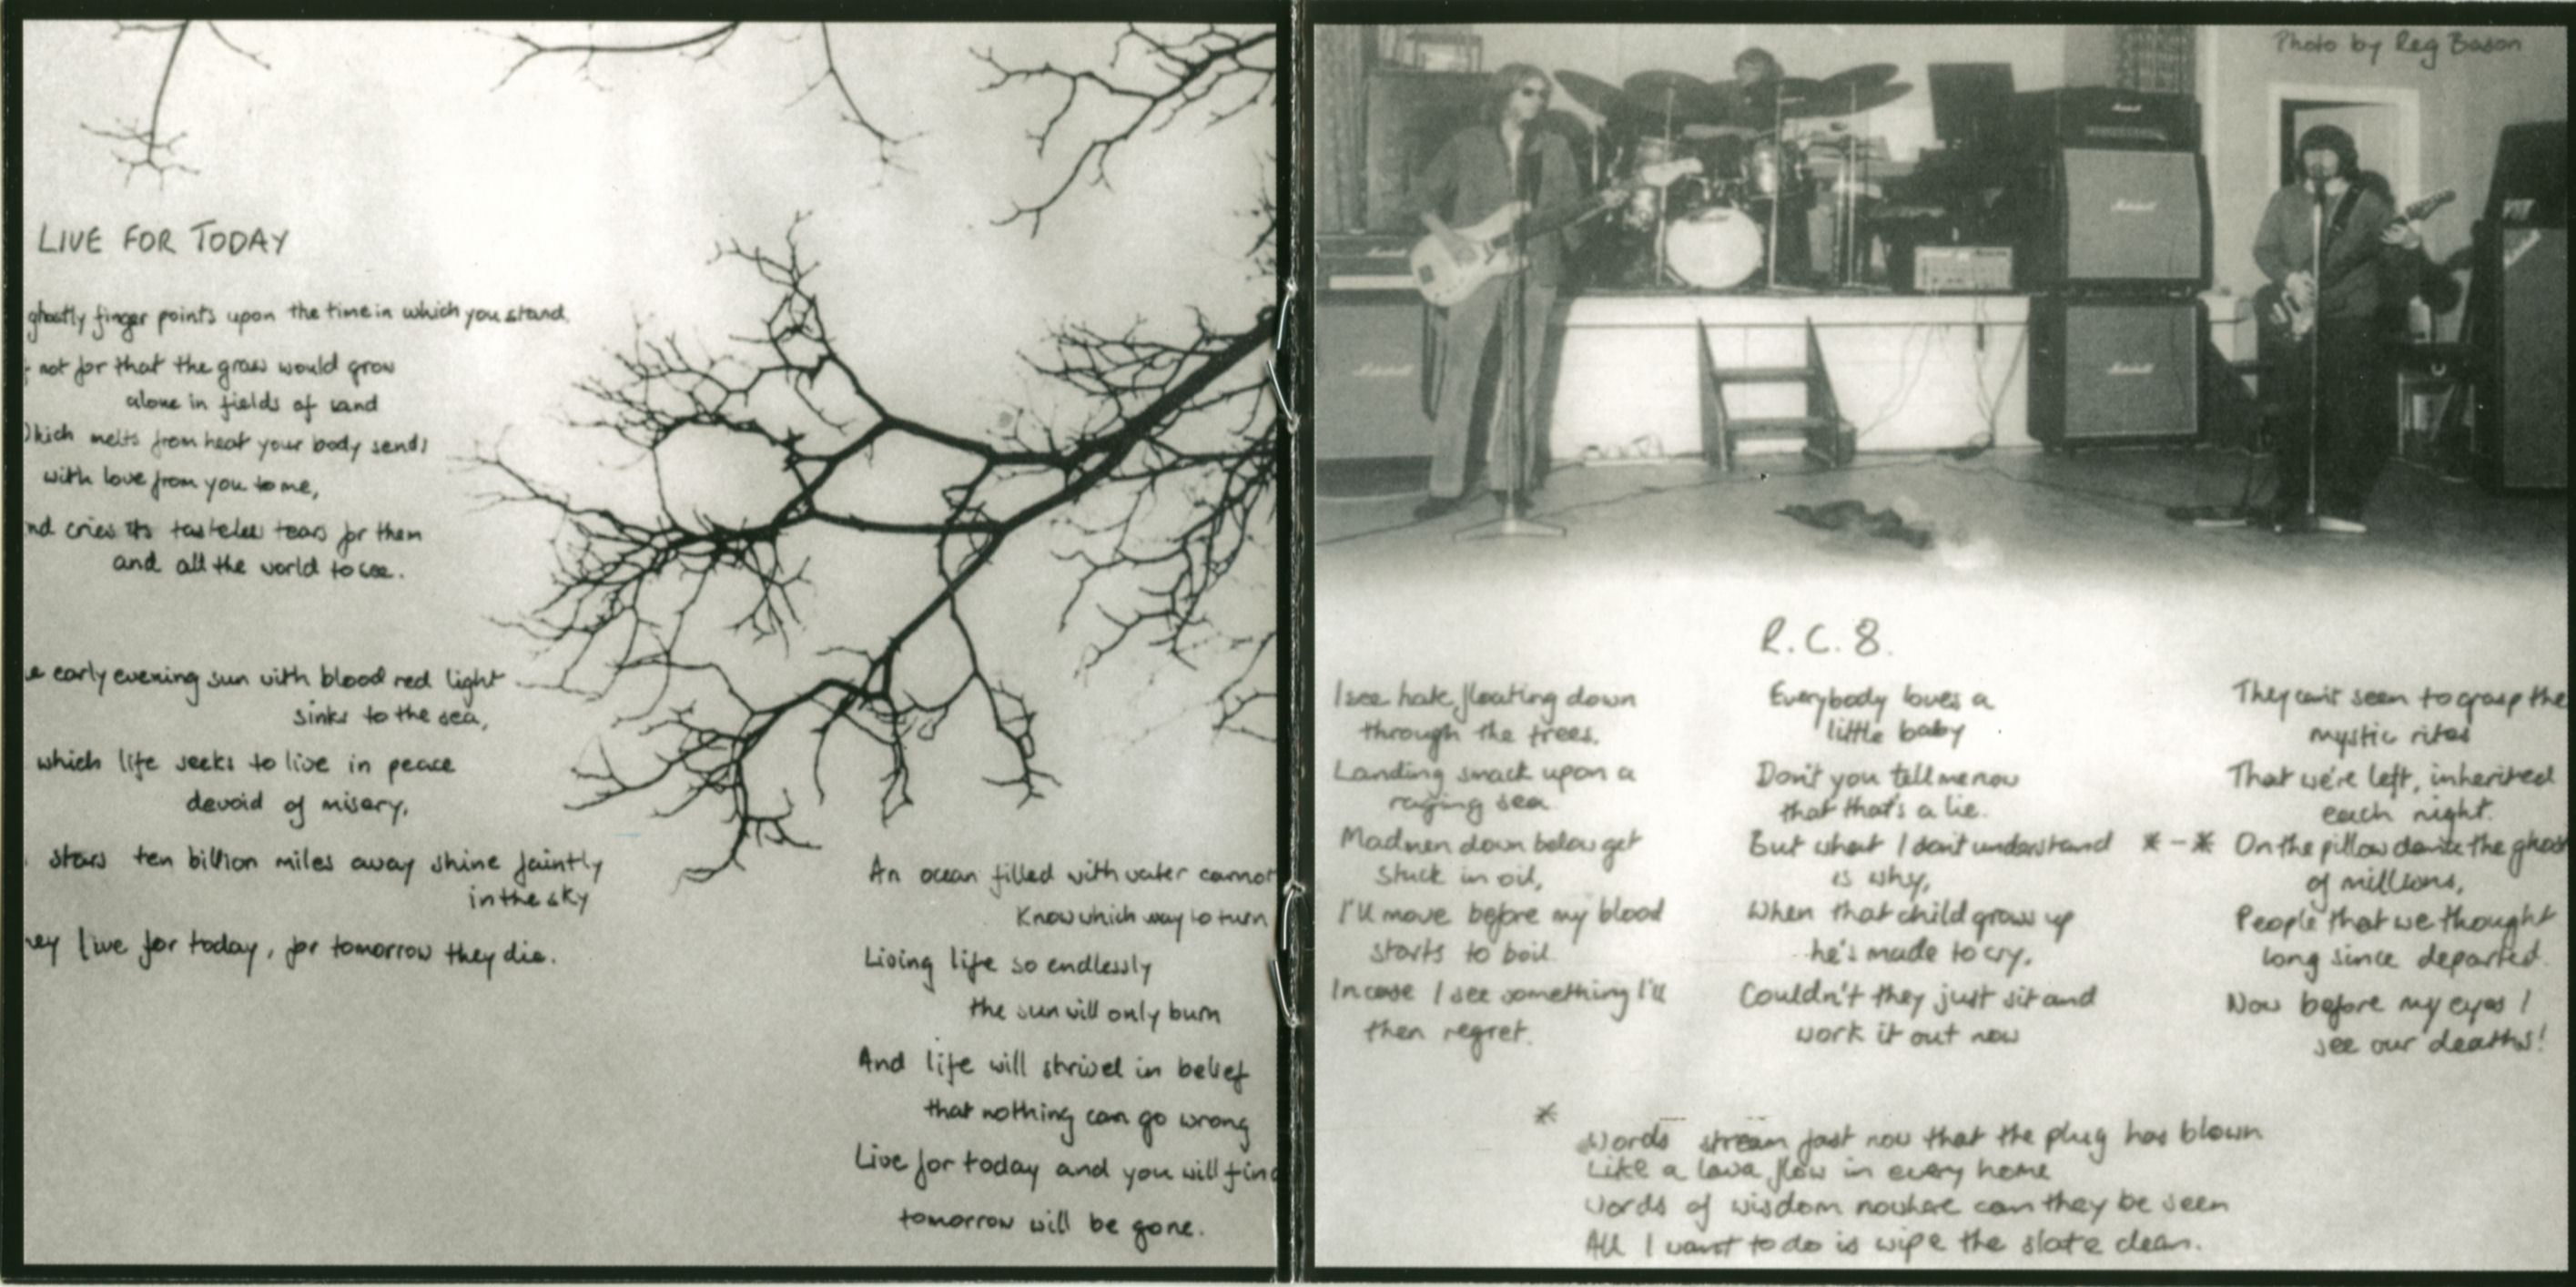 LIVE FOR TODAY
ghostly finger points upon the time in which you stand,
not for that the grass would grow
alone in fields of sand
hich melts from heat your body sends
with love from you to me,
nd cries its tasteless tears for them
and all the world to see.
e early evening sun with blood red light
sinks to the sea,
which life seeks to live in peace
devoid of misery,
stars ten billion miles away shine faintly
in the sky
ey live for today, for tomorrow they die.
An ocean filled with water cannot
Know which way to turn
Living life so endlessly
the sun will only burn
And life will strivel in belief
that nothing can go wrong
Live for today and you will find
tomorrow will be gone.
Photo by Reg Bason
Marshall
Marshall
Marshall
Marshall
R.C.8.
I see hate, floating down
through the trees.
Landing smack upon a
raging sea.
Madmen down below get
stuck in oil,
I'll move before my blood
starts to boil.
In case I see something I'll
then regret.
Everybody loves a
little baby
Don't you tell me now
that that's a lie.
But what I don't understand
is why,
When that child grows up
he's made to cry.
Couldn't they just sit and
work it out now
They can't seem to grasp the
mystic rites
That we're left, inherited
each night.
* - * On the pillow dance the ghos
of millions,
People that we thought
long since departed.
Now before my eyes I
see our deaths!
*
Words stream fast now that the plug has blown
Like a lava flow in every home
Words of wisdom nowhere can they be seen
All I want to do is wipe the slate clean.